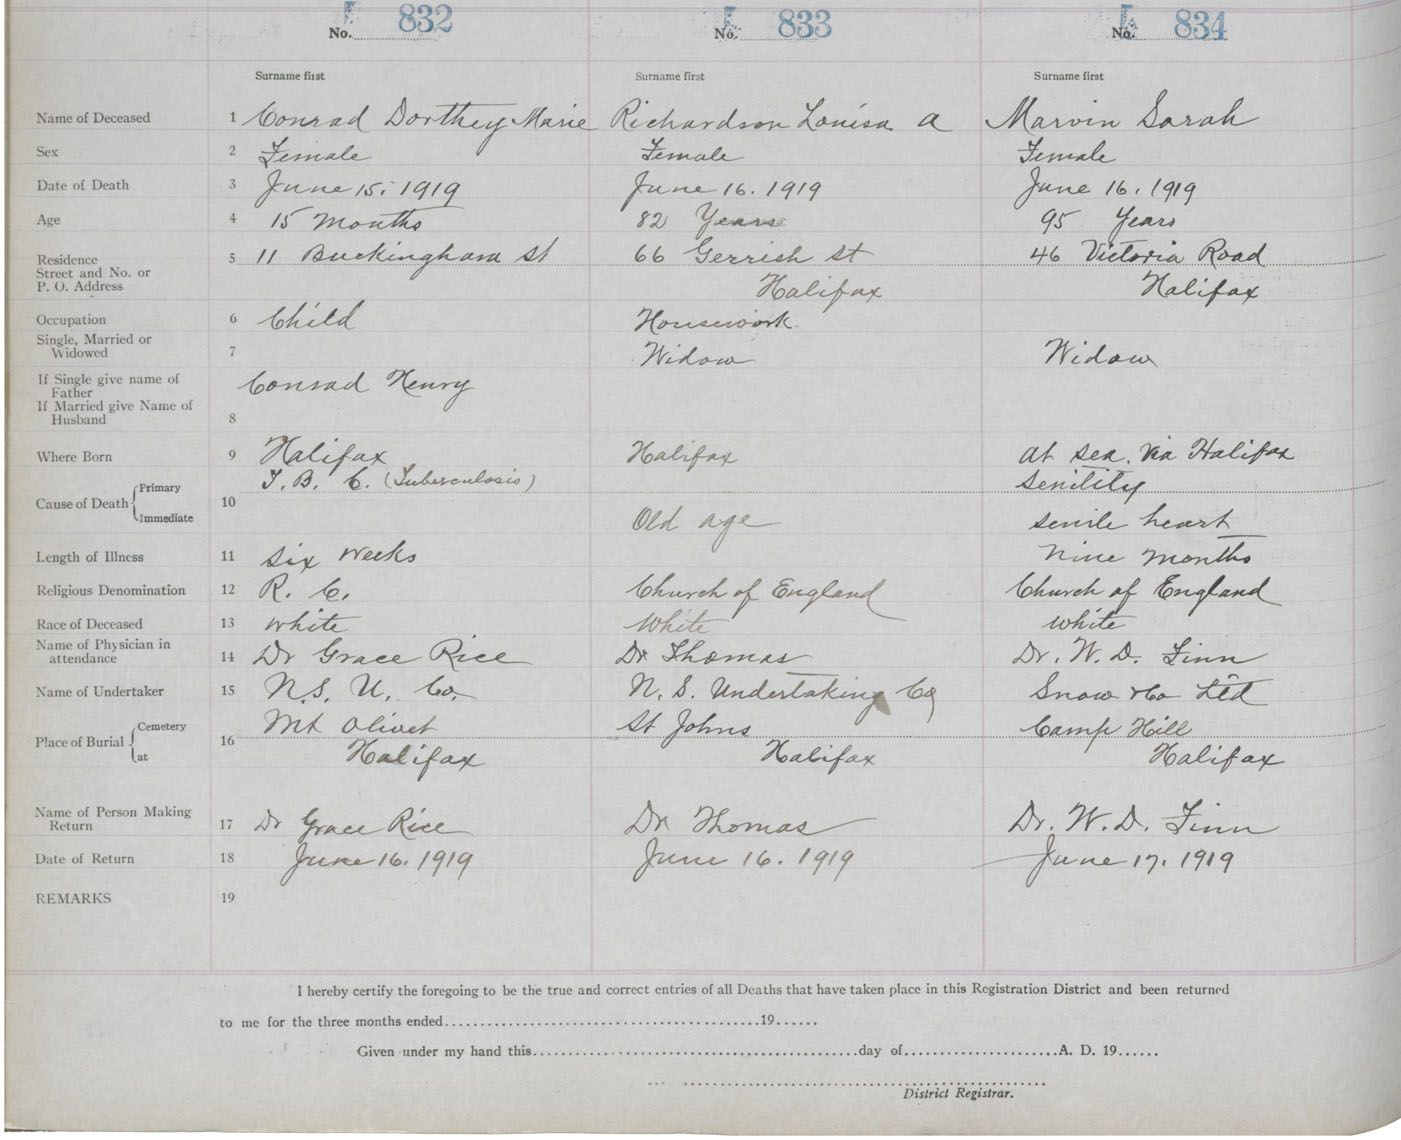 No. 832 No. 833 No. 834
Surname first Surname first Surname first
Name of Deceased 1 Conrad Dorthey Marie Richardson Louisa A Marvin Sarah
Sex 2 Female Female Female
Date of Death 3 June 15. 1919 June 16. 1919 June 16. 1919
Age 4 15 Months 82 Years 95 Years
Residence
Street and No. or 5 11 Buckingham St 66 Gerrish St 46 Victoria Road
P. O. Address Halifax Halifax
Occupation 6 Child Housework
Single, Married or
Widowed 7 Widow Widow
If Single give name of
Father Conrad Henry
If Married give Name of
Husband 8
Where Born 9 Halifax Halifax at sea. Via Halifax
Cause of Death Primary T. B. C. (Tuberculosis) Senility
10
Immediate Old age senile heart
Length of Illness 11 six weeks nine months
Religious Denomination 12 R. C. Church of England Church of England
Race of Deceased 13 white white white
Name of Physician in
attendance 14 Dr Grace Rice Dr Thomas Dr. W. D. Finn
Name of Undertaker 15 N.S. U. Co. N. S. Undertaking Co Snow & Co Ltd
Place of Burial Cemetery 16 Mt Olivet St Johns Camp Hill
at Halifax Halifax Halifax
Name of Person Making
Return 17 Dr Grace Rice Dr Thomas Dr. W. D. Finn
Date of Return 18 June 16. 1919 June 16. 1919 June 17. 1919
REMARKS 19
I hereby certify the foregoing to be the true and correct entries of all Deaths that have taken place in this Registration District and been returned
to me for the three months ended............................................19......
Given under my hand this..............................................day of......................A. D. 19......
District Registrar.